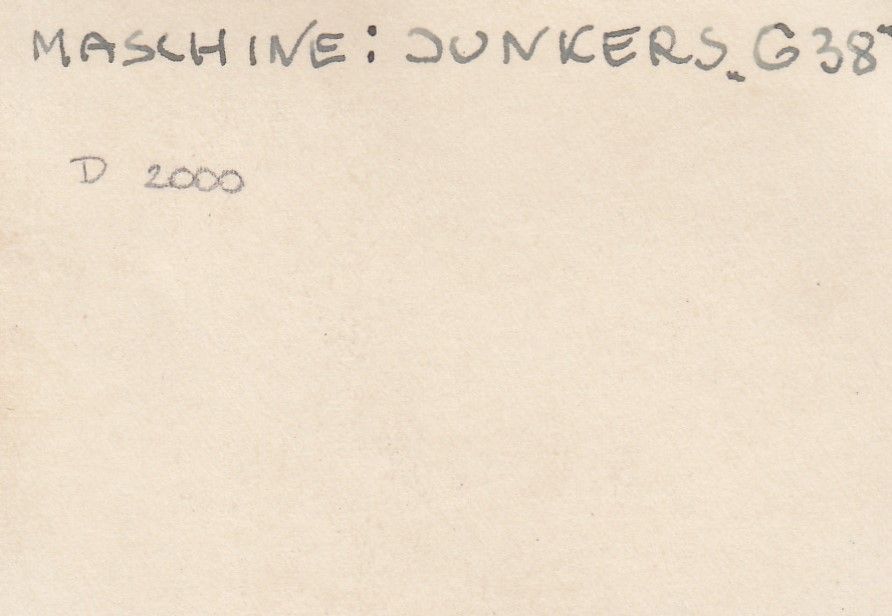 MASCHINE: JUNKERS „G38“
D 2000